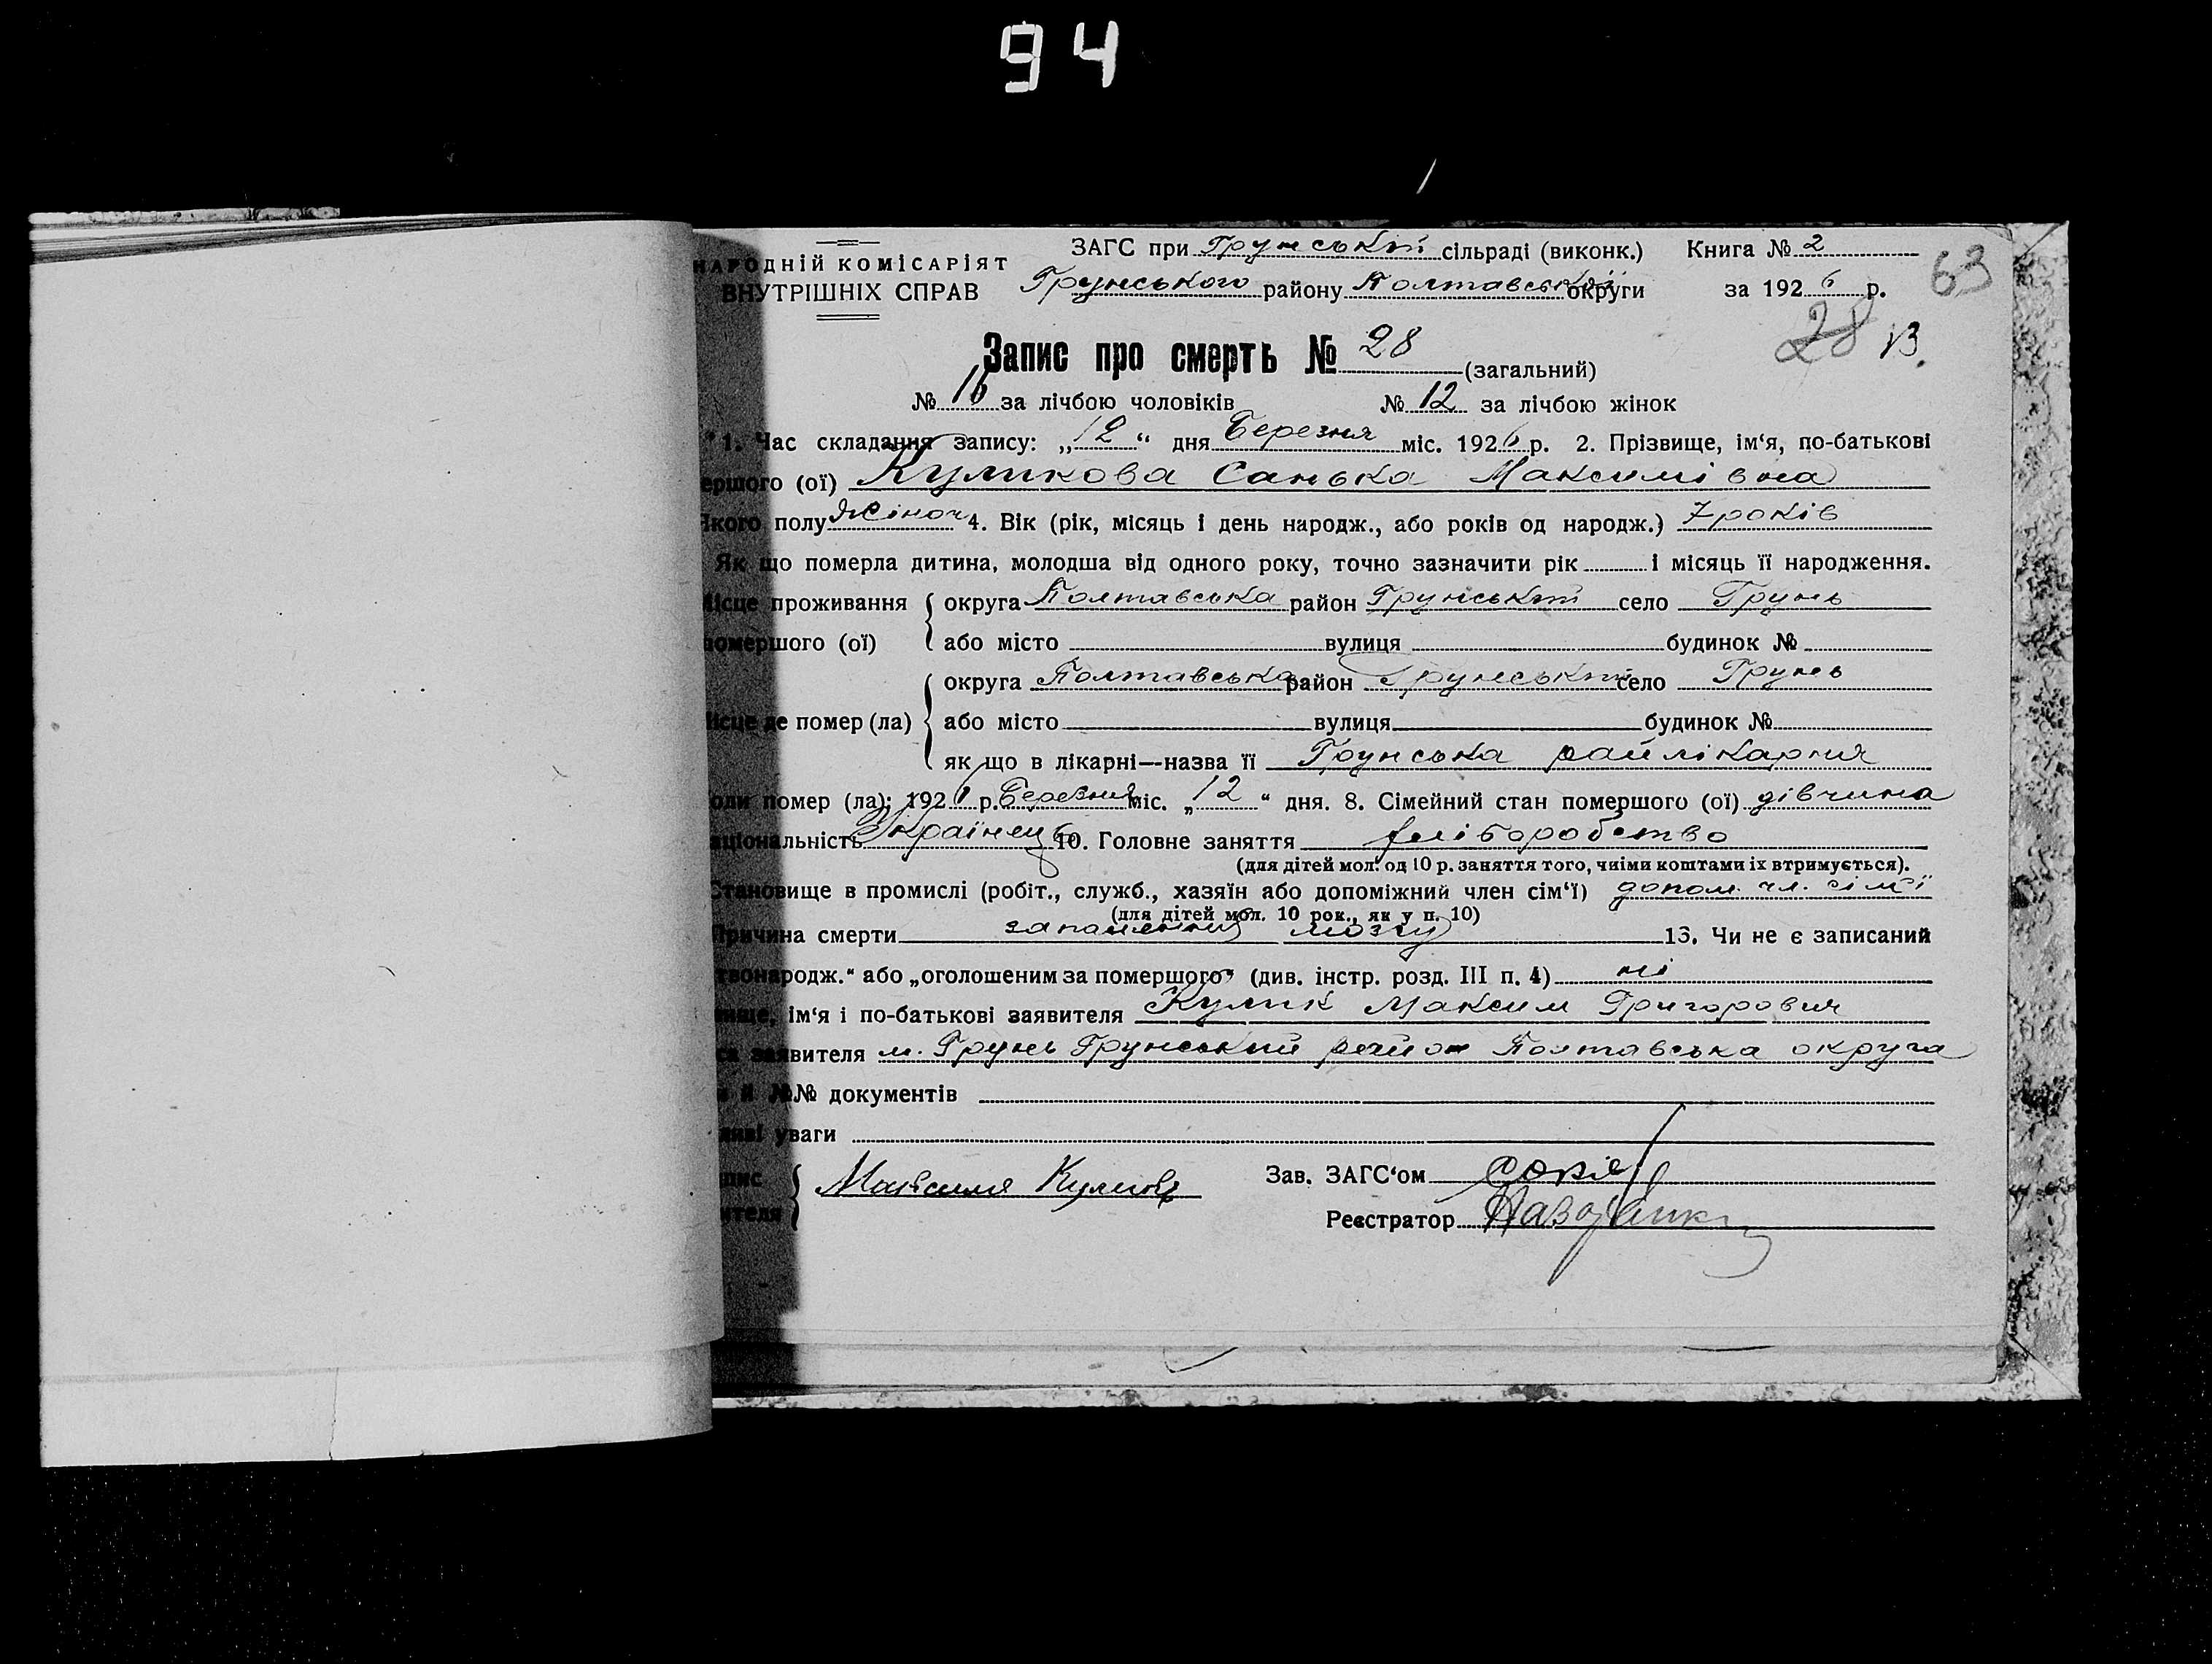 94
НАРОДНІЙ КОМІСАРІЯТ
ВНУТРІШНІХ СПРАВ
ЗАГС при Грунській сільраді (виконк.) Книга № 2
Грунського району Полтавської округи за 1926 р. 63
28 13.
Запис про смерть № 28 (загальний)
№ 16 за лічбою чоловіків № 12 за лічбою жінок
1. Час складання запису: „12“ дня Березня міс. 1926 р. 2. Прізвище, ім‘я, по-батькові
ершого (ої) Куликова Санька Максимівна
Якого полу Жіноч. 4. Вік (рік, місяць і день народж., або років од народж.) 7 років
Як що померла дитина, молодша від одного року, точно зазначити рік і місяць її народження.
Місце проживання округа Полтавська район Грунський село Грунь
помершого (ої) або місто вулиця будинок №
округа Полтавська район Грунський село Грунь
Місце де помер (ла) або місто вулиця будинок №
як що в лікарні—назва її Грунська райлікарня
оли помер (ла): 1926 р. Березня міс. „12“ дня. 8. Сімейний стан помершого (ої) дівчина
аціональність Українець 10. Головне заняття хліборобство
(для дітей мол. од 10 р. заняття того, чиїми коштами їх втримується).
Становище в промислі (робіт., служб., хазяїн або допоміжний член сім‘ї) допом. чл. сім‘ї
(для дітей мол. 10 рок., як у п. 10)
Причина смерти запалення мозгу 13. Чи не є записаний
твонародж.“ або „оголошеним за помершого“ (див. інстр. розд. III п. 4) ні
вище, ім‘я і по-батькові заявителя Кулик Максим Григорович
са заявителя м. Грунь Грунський район Полтавська округа
и й №№ документів
ливі уваги
пис
ителя Максим Кулик
Зав. ЗАГС‘ом
Реєстратор